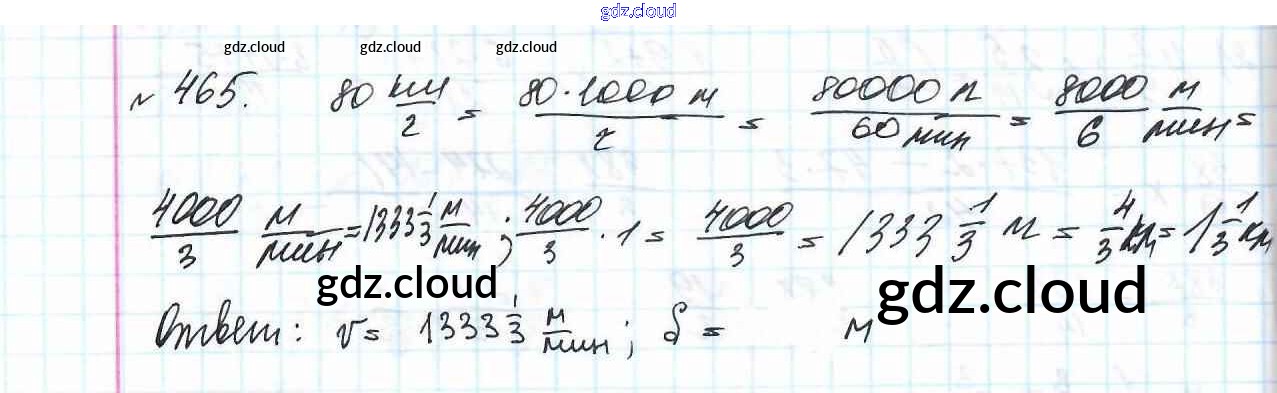 gdz.cloud
gdz.cloud gdz.cloud gdz.cloud
№ 465. 80 км/г = 80·1000 м/г = 80000 м/60 мин = 8000/6 м/мин =
4000/3 м/мин = 1333 1/3 м/мин; 4000/3 · 1 = 4000/3 = 1333 1/3 м = 4/3 км = 1 1/3 км
gdz.cloud gdz.cloud
Ответ: v = 1333 1/3 м/мин; S = м